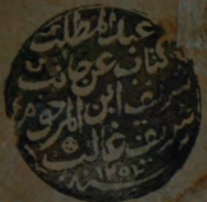 عبد المطلب
كتاب عن جانب
شريف ابن المرحوم
شريف غالب
سنة ١٢٥٢